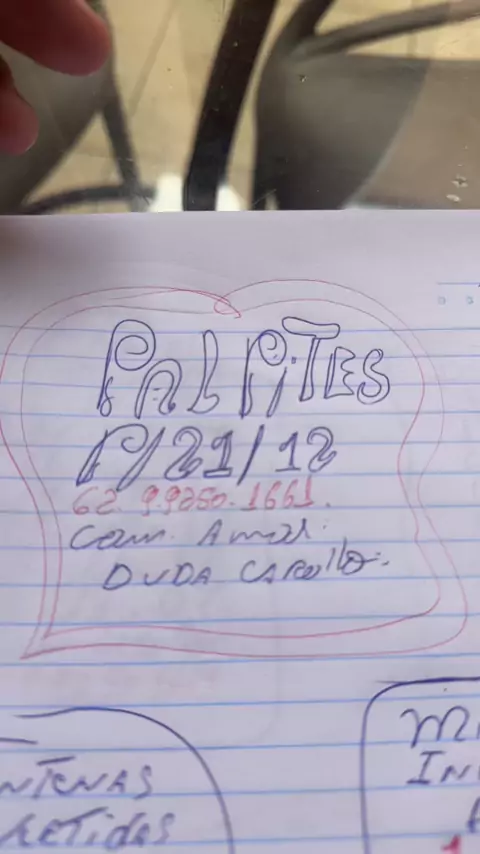 PALPITES
P/21/12
62.99250.1661.
Com. Amor.
DUDA CAROLLO.
NTENAS
RETIDAS
M
IN
1